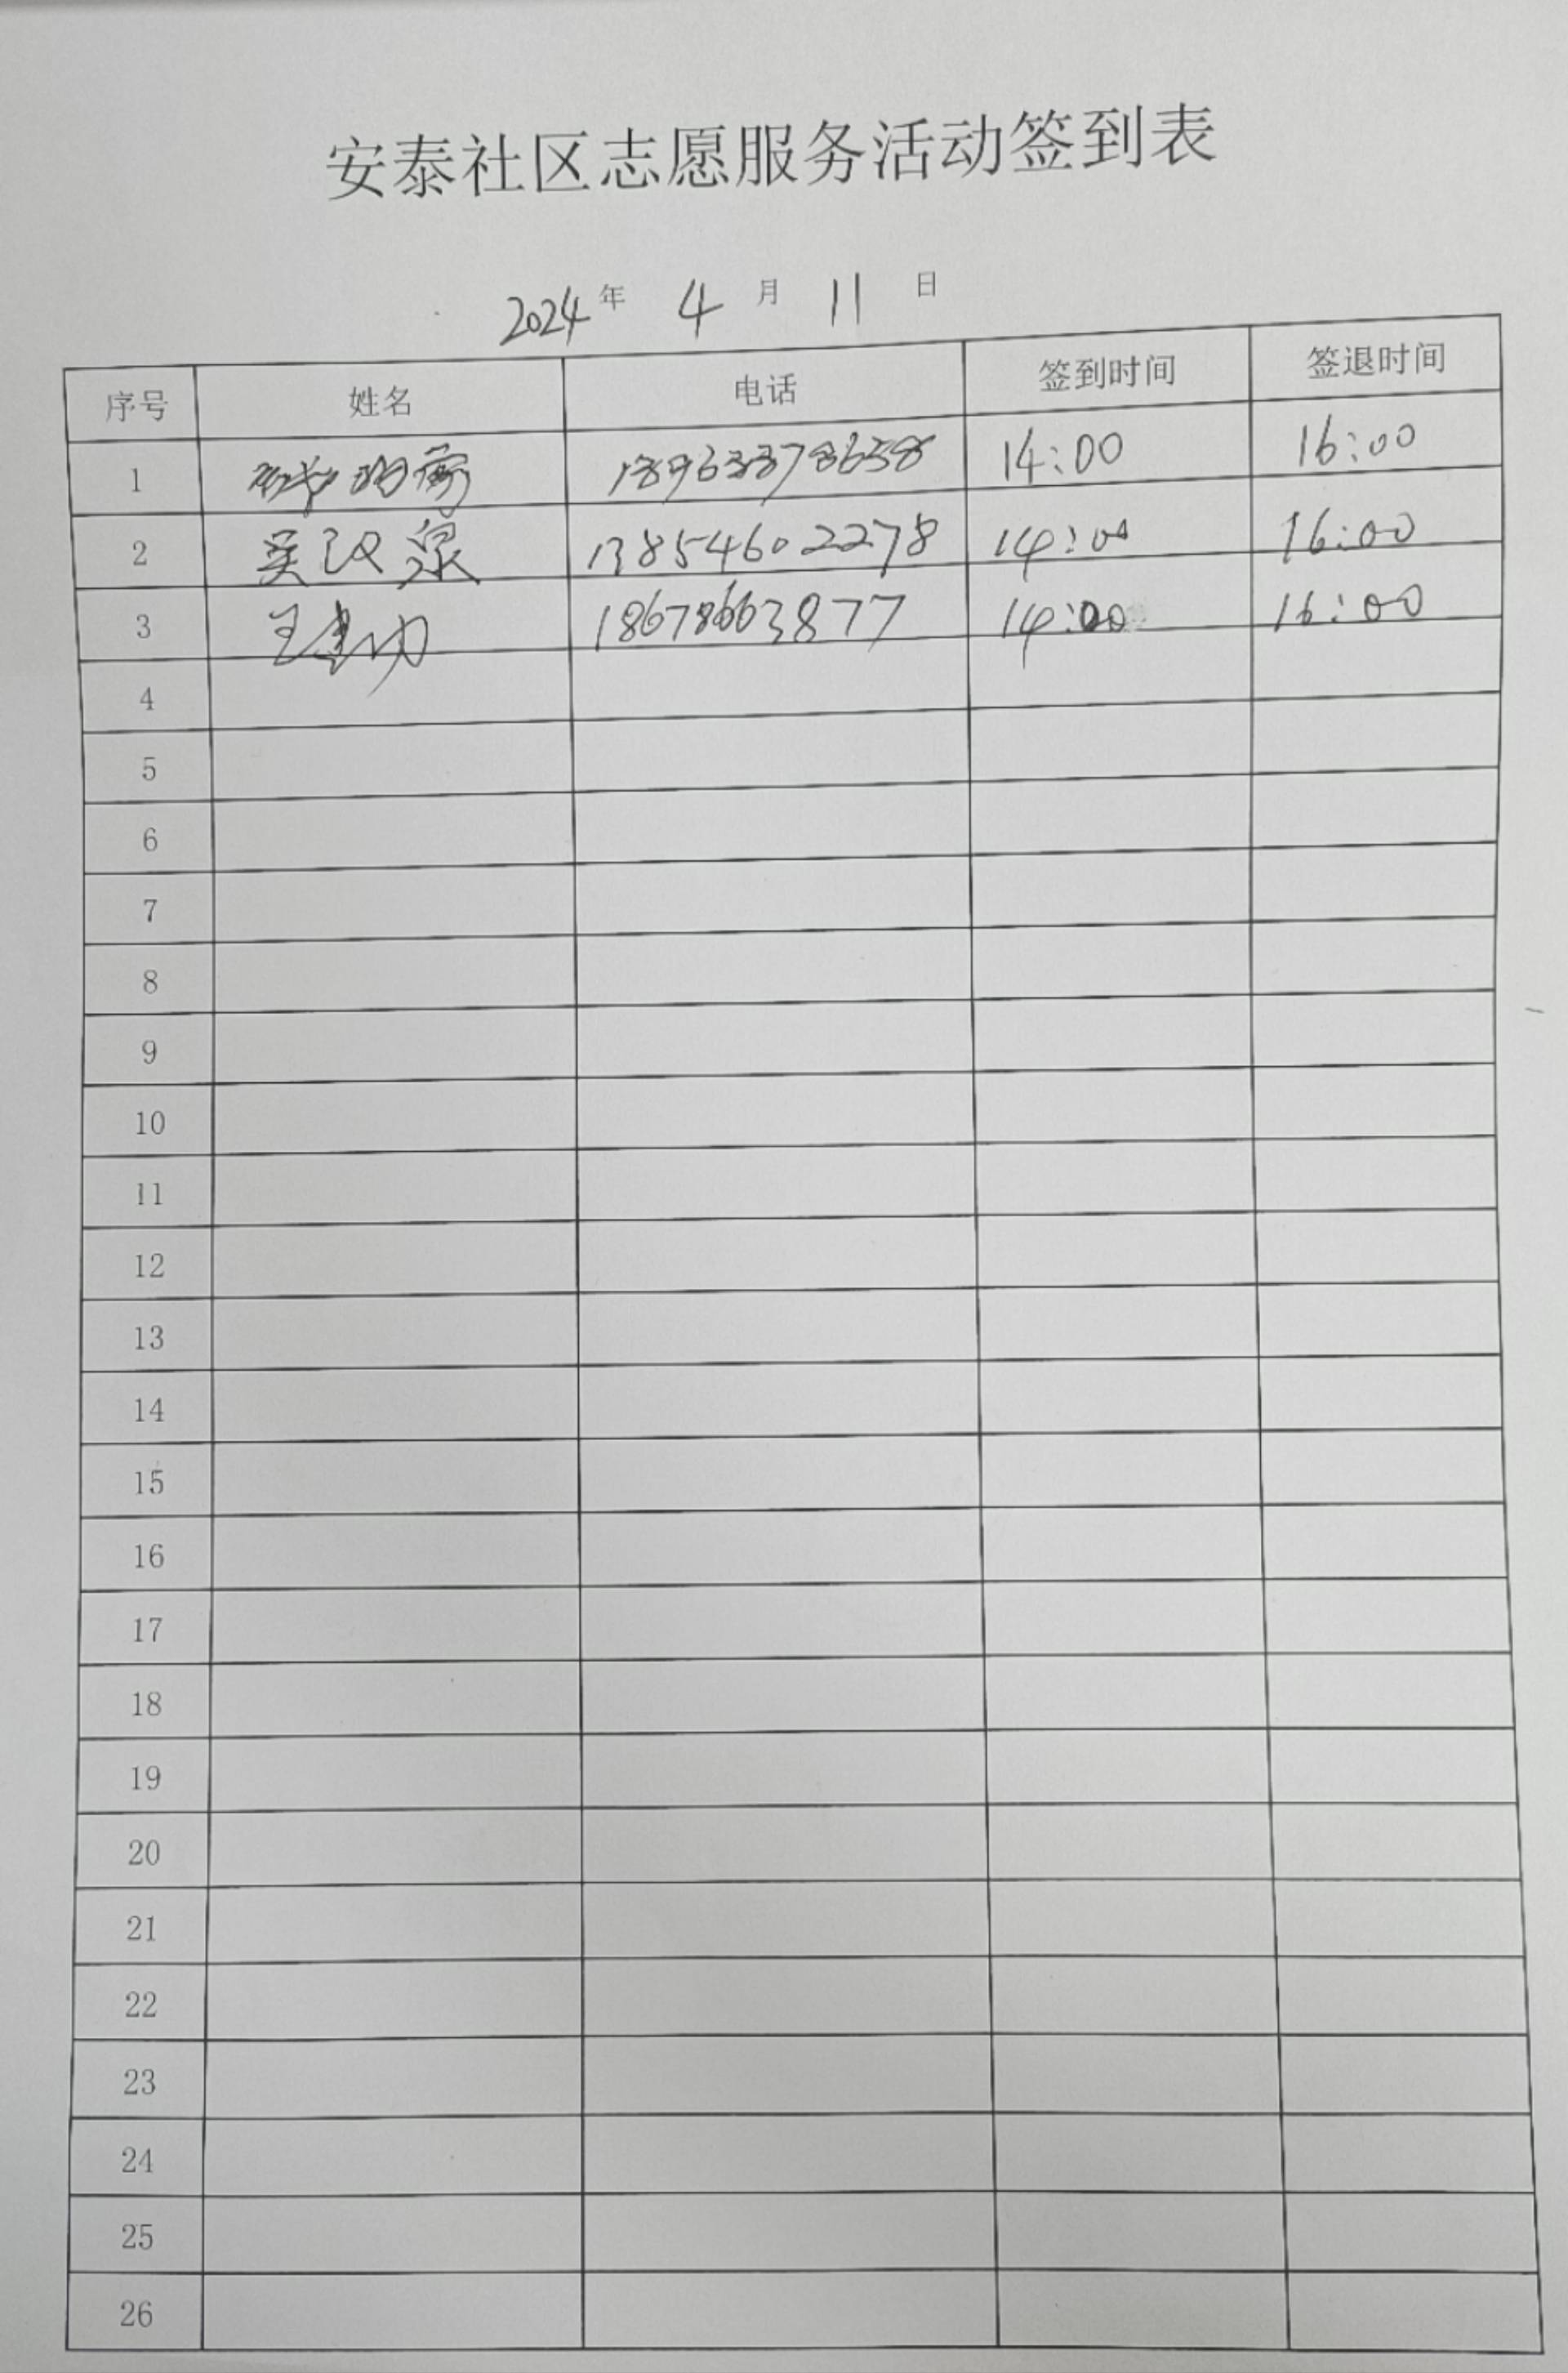 安泰社区志愿服务活动签到表
2024年 4月 11日
序号 姓名 电话 签到时间 签退时间
1 14:00 16:00
2 吴汉泉 13854602278 14:00 16:00
3 王建功 18678663877 14:00 16:00
4
5
6
7
8
9
10
11
12
13
14
15
16
17
18
19
20
21
22
23
24
25
26